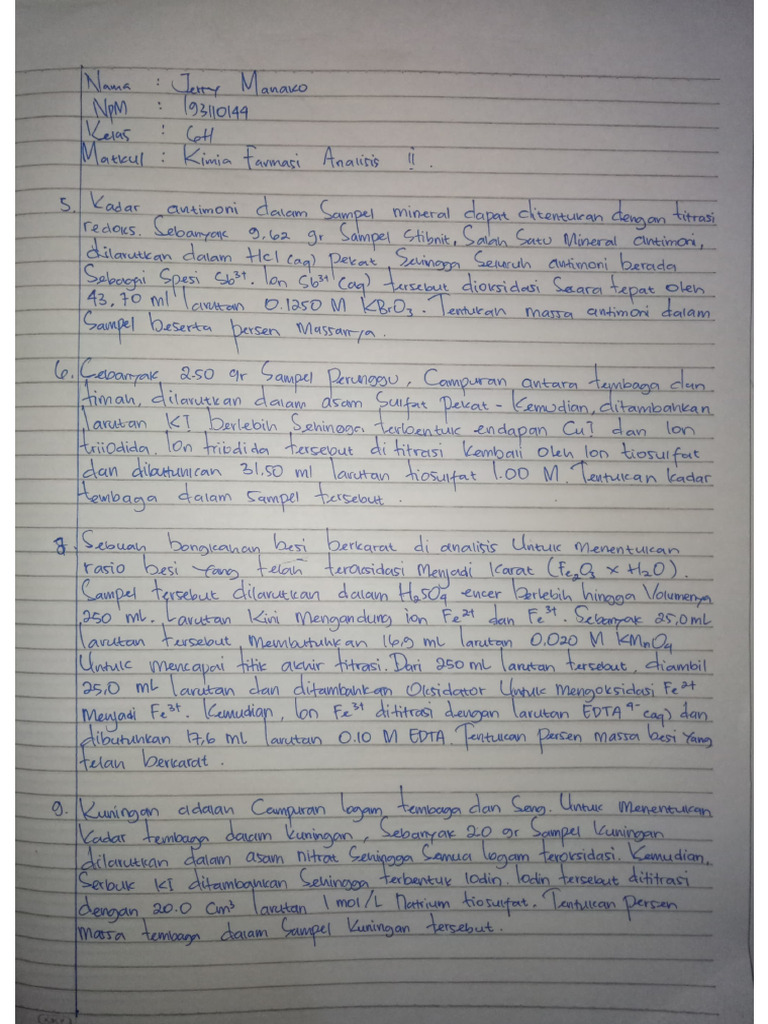 Nama : Jerry Manako
NPM : 193110149
Kelas : 6H
Matkul : Kimia Farmasi Analisis II.
5. Kadar antimoni dalam Sampel mineral dapat ditentukan dengan titrasi
redoks. Sebanyak 9,62 gr Sampel Stibnit, Salah Satu Mineral antimoni,
dilarutkan dalam HCl (aq) pekat Sehingga Seluruh antimoni berada
Sebagai Spesi Sb³⁺. Ion Sb³⁺ (aq) tersebut dioksidasi Secara tepat oleh
43,70 ml larutan 0.1250 M KBrO₃. Tentukan massa antimoni dalam
Sampel beserta persen Massanya.
6. Sebanyak 2.50 gr Sampel Perunggu, Campuran antara tembaga dan
timah, dilarutkan dalam asam Sulfat Pekat - Kemudian, ditambahkan
larutan KI berlebih Sehingga terbentuk endapan CuI dan Ion
triiodida. Ion triodida tersebut di titrasi Kembali oleh Ion tiosulfat
dan dibutuhkan 31,50 ml larutan tiosulfat 1.00 M. Tentukan kadar
tembaga dalam Sampel tersebut.
8. Sebuah bongkahan besi berkarat di analisis Untuk menentukan
rasio besi Yang telah teroksidasi Menjadi Karat (Fe₂O₃ × H₂O).
Sampel tersebut dilarutkan dalam H₂SO₄ encer berlebih hingga Volumenya
250 ml. Larutan Kini Mengandung ion Fe²⁺ dan Fe³⁺. Sebanyak 25,0 mL
larutan tersebut Membutuhkan 16,9 mL larutan 0.020 M KMnO₄
Untuk mencapai titik akhir titrasi. Dari 250 mL larutan tersebut, diambil
25,0 mL larutan dan ditambahkan Oksidator Untuk Mengoksidasi Fe²⁺
Menjadi Fe³⁺. Kemudian, Ion Fe³⁺ dititrasi dengan larutan EDTA⁴⁻ (aq) dan
dibutuhkan 17,6 ml larutan 0.10 M EDTA. Tentukan persen massa besi Yang
telah berkarat.
9. Kuningan adalah Campuran logam tembaga dan Seng. Untuk Menentukan
Kadar tembaga dalam Kuningan, Sebanyak 2.0 gr Sampel Kuningan
dilarutkan dalam asam nitrat Sehingga Semua logam teroksidasi. Kemudian,
Serbuk KI ditambahkan Sehingga terbentuk Iodin. Iodin tersebut dititrasi
dengan 20.0 Cm³ larutan 1 mol/L Natrium tiosulfat. Tentukan Persen
massa tembaga dalam Sampel Kuningan tersebut.